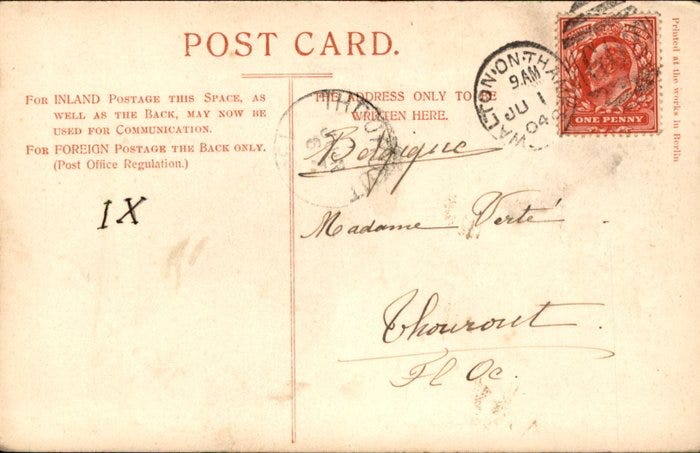 POST CARD.
FOR INLAND POSTAGE THIS SPACE, AS
WELL AS THE BACK, MAY NOW BE
USED FOR COMMUNICATION.
FOR FOREIGN POSTAGE THE BACK ONLY.
(Post Office Regulation.)
THE ADDRESS ONLY TO BE
WRITTEN HERE.
WALTON·ON·THA
9 AM
JU 1
04
ONE PENNY
Printed at the works in Berlin
THOUROUT
Belgique
IX
Madame Verté
Thourout.
Fl Oc.